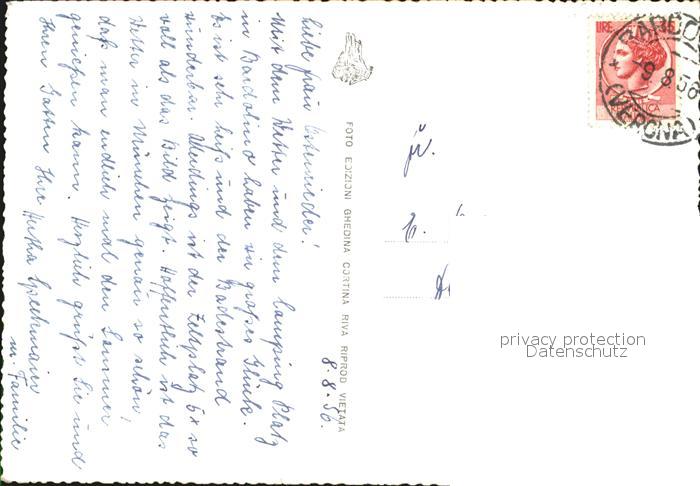 8.8.56.
Liebe Frau Osterrieder!
Mit dem Wetter und dem Camping Platz
in Bardolino haben wir großes Glück.
Es ist sehr heiß und der Badestrand
wunderbar. Allerdings ist der Zeltplatz 5x so
voll als das Bild zeigt. Hoffentlich ist das
Wetter in München genau so schön,
daß man endlich mal den Sommer
genießen kann. Herzlich grüßt Sie und
Ihren Gatten Ihre Hertha Speckmaier
u. Familie
FOTO EDIZIONI GHEDINA CORTINA RIVA RIPROD VIETATA
LIRE
BARDO
9.8.56
(VERONA)
privacy protection
Datenschutz